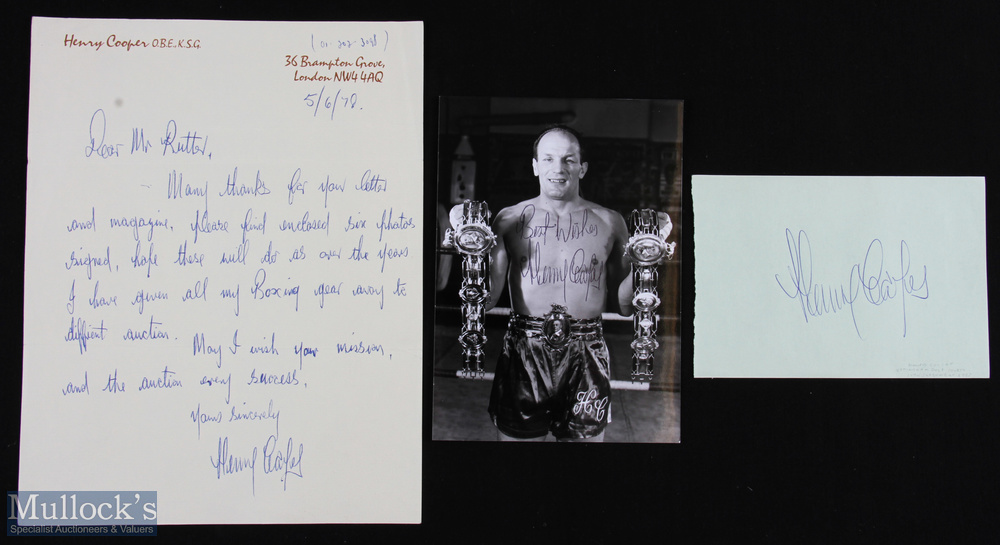 Henry Cooper O.B.E. K.S.G.
36 Brampton Grove,
London NW4 4AQ
5/6/78.
Dear Mr Rutter,
Many thanks for your letter
and magazine, please find enclosed six photos
signed, hope these will do as over the years
I have given all my Boxing gear away to
diffrent auction.
May I wish your mission,
and the auction every success,
Yours sincerely
Henry Cooper
Best Wishes
Henry Cooper
HC
Henry Cooper
Mullock's
Specialist Auctioneers & Valuers